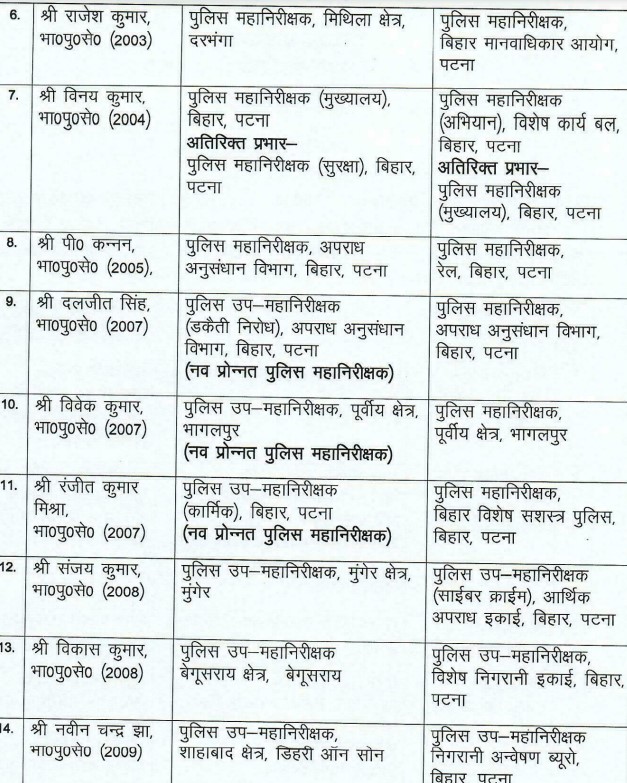 6.
श्री राजेश कुमार,
भा०पु०से० (2003)
पुलिस महानिरीक्षक, मिथिला क्षेत्र,
दरभंगा
पुलिस महानिरीक्षक,
बिहार मानवाधिकार आयोग,
पटना
7.
श्री विनय कुमार,
भा०पु०से० (2004)
पुलिस महानिरीक्षक (मुख्यालय),
बिहार, पटना
अतिरिक्त प्रभार–
पुलिस महानिरीक्षक (सुरक्षा), बिहार,
पटना
पुलिस महानिरीक्षक
(अभियान), विशेष कार्य बल,
बिहार, पटना
अतिरिक्त प्रभार–
पुलिस महानिरीक्षक
(मुख्यालय), बिहार, पटना
8.
श्री पी० कन्नन,
भा०पु०से० (2005),
पुलिस महानिरीक्षक, अपराध
अनुसंधान विभाग, बिहार, पटना
पुलिस महानिरीक्षक,
रेल, बिहार, पटना
9.
श्री दलजीत सिंह,
भा०पु०से० (2007)
पुलिस उप–महानिरीक्षक
(डकैती निरोध), अपराध अनुसंधान
विभाग, बिहार, पटना
(नव प्रोन्नत पुलिस महानिरीक्षक)
पुलिस महानिरीक्षक,
अपराध अनुसंधान विभाग,
बिहार, पटना
10.
श्री विवेक कुमार,
भा०पु०से० (2007)
पुलिस उप–महानिरीक्षक, पूर्वीय क्षेत्र,
भागलपुर
(नव प्रोन्नत पुलिस महानिरीक्षक)
पुलिस महानिरीक्षक,
पूर्वीय क्षेत्र, भागलपुर
11.
श्री रंजीत कुमार
मिश्रा,
भा०पु०से० (2007)
पुलिस उप–महानिरीक्षक
(कार्मिक), बिहार, पटना
(नव प्रोन्नत पुलिस महानिरीक्षक)
पुलिस महानिरीक्षक,
बिहार विशेष सशस्त्र पुलिस,
बिहार, पटना
12.
श्री संजय कुमार,
भा०पु०से० (2008)
पुलिस उप–महानिरीक्षक, मुंगेर क्षेत्र,
मुंगेर
पुलिस उप–महानिरीक्षक
(साईबर क्राईम), आर्थिक
अपराध इकाई, बिहार, पटना
13.
श्री विकास कुमार,
भा०पु०से० (2008)
पुलिस उप–महानिरीक्षक
बेगूसराय क्षेत्र, बेगूसराय
पुलिस उप–महानिरीक्षक,
विशेष निगरानी इकाई, बिहार,
पटना
14.
श्री नवीन चन्द्र झा,
भा०पु०से० (2009)
पुलिस उप–महानिरीक्षक,
शाहाबाद क्षेत्र, डिहरी ऑन सोन
पुलिस उप–महानिरीक्षक
निगरानी अन्वेषण ब्यूरो,
बिहार पटना